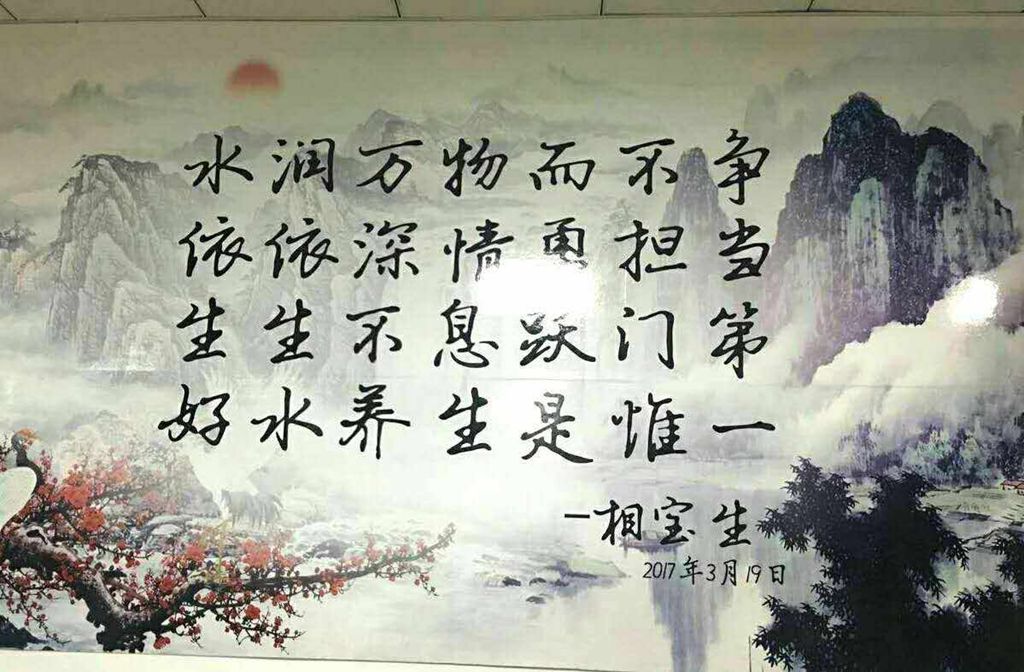 水润万物而不争
依依深情勇担当
生生不息跃门第
好水养生是惟一
一相宝生
2017年3月19日